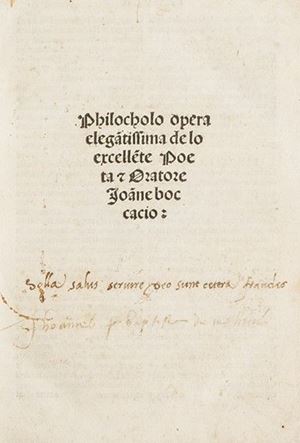 Philocholo opera
elegãtissima de lo
excellẽte Poe
ta ⁊ Oratore
Joãne boc
cacio:
Solla salus servire deo sunt cetera fraudes
Baptista de